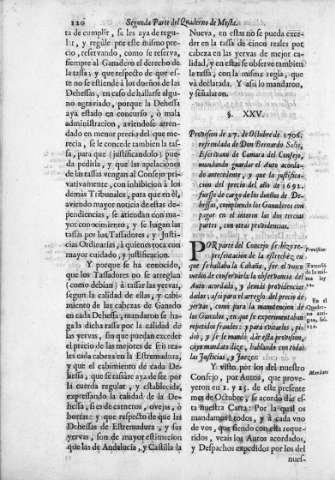 120 Segunda Parte del Quaderno de Mesta.
ta de cumplir, se les aya de regu-
lar, y regule por este mismo precio
, reservando, como se reserva,
siempre al Ganadero el derecho de
la tassa; y que respecto de que es-
to no se estiende à los dueños de las
Dehessas, en caso de hallarse algu-
no agraviado, porque la Dehessa
aya estado en concurso, ò mala
administracion, aviendose arren-
dado en menor precio del que me-
recia, se le concede tambien la tas-
sa, para que justificandolo pue-
da pedirla, y que las apelaciones
de las tassas vengan al Consejo pri-
vativamente, con inhibicion à los
demàs Tribunales, para que en èl,
aviendo mayor noticia de estas de-
pendencias, se atiendan con ma-
yor conocimiento, y se hagan las
tassas por los Tassadores, y Justi-
cias Ordinarias, à quienes toca con
mayor cuidado, y justificacion.
Y porque se ha conocido,
que los Tassadores no se arreglan
(como debian) à tassar las yervas,
segun la calidad de ellas, y cabi-
miento de las cabezas de Ganado
en cada Dehessa, mandaron se ha-
ga la dicha tassa por la calidad de
las yervas, sin que puedan exceder
el precio de las mejores de 8 reales
cada cabeza en la Estremadura,
y que el cabimiento de cada De-
hessa, que se tassàre aya de ser por
la cuerda regular, y establecida,
expressando la calidad de la De-
hessa, si es de carneros, ovejas, ò
borras: y que respecto de que las
Dehessas de Estremadura, y sus
yervas, son de mayor estimacion
que las de Andalucia, y Castilla la
Nueva, en estas no se pueda exce-
der en la tassa de cinco reales por
cabeza en las yervas de mejor ca-
lidad, y en estas se observe tambien
la tassa, con la misma regla, que
và declarada. Y assi lo mandaron,
y señalaron.
§. XXV.
Provision de 27. de Octubre de 1706.
refrendada de Don Bernardo Solis,
Escrivano de Camara del Consejo,
mandando guardar el Auto acorda-
do antecedente, y que la justifica-
cion del precio del año de 1692.
fuesse de cargo de los dueños de De-
hessas, cumpliendo los Ganaderos con
pagar en el interin las dos tercias
partes, con otras providencias.
POR parte del Concejo se hizo re-
presentacion de la estrechez en
que se hallaba la Cabaña, por el
verdo de conferirsela la observancia del
Auto acordado, y demàs providencias
dadas, assi para el arreglo del precio de
yervas, como para la manutencion de
los Ganados, con que se experimentaban
repetidos fraudes: y para evitarlos, pi-
diò, y se le mandò dar esta provision,
cuyo mandato llega, hablando con todas
las Justicias, y Jueces.
Y visto por los del nuestro
Consejo, por Autos, que prove-
yeron en 2. y 25. de este presente
mes de Octubre, se acordò dàr es-
ta nuestra Carta: Por la qual os
mandamos à todos, y à cada uno
de vos, que siendo con esta reque-
ridos, veais los Autos acordados,
y Despachos expedidos por los del
nues-
Mandato